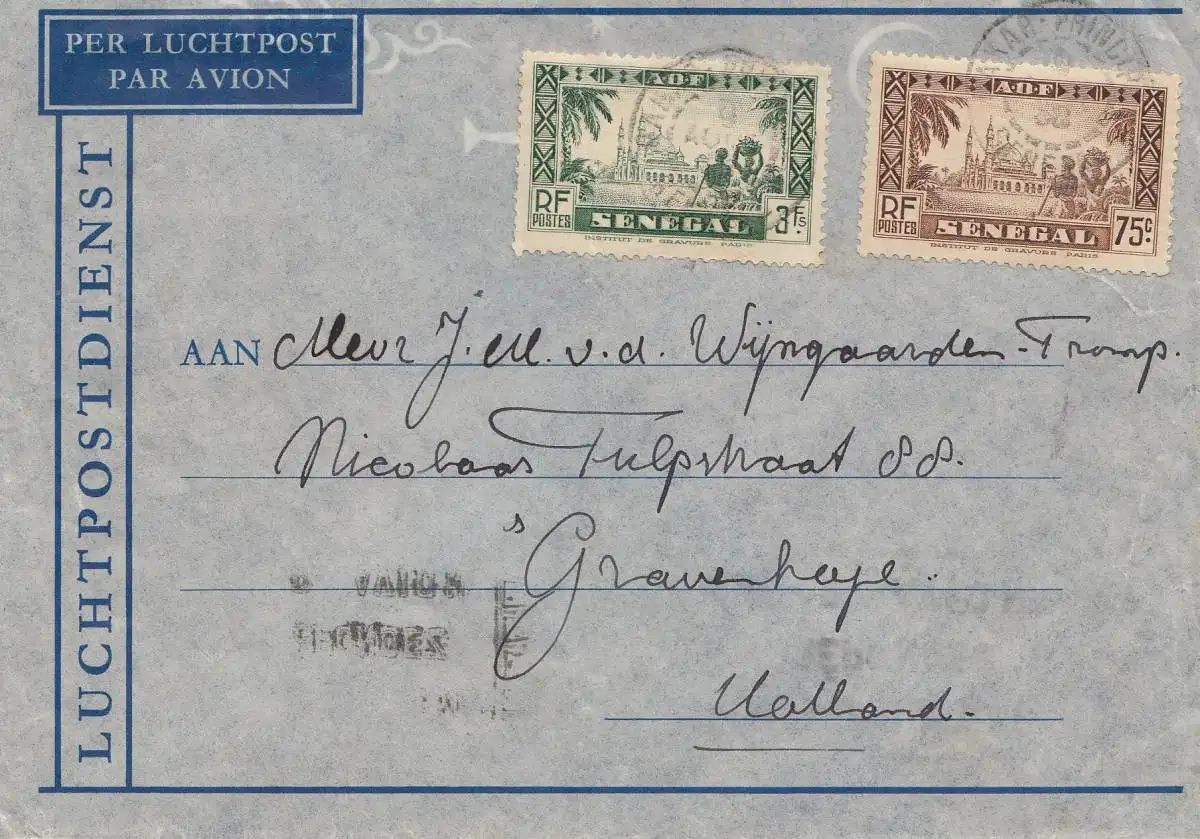 PER LUCHTPOST
PAR AVION
LUCHTPOSTDIENST
A·O·F
RF
POSTES
SENEGAL
3Fs
INSTITUT DE GRAVURE PARIS
A·O·F
RF
POSTES
SENEGAL
75c
INSTITUT DE GRAVURE PARIS
KAR-PRINCI
AAN Mevr J. M. v. d. Wijngaarden-Tromp.
Nicolaas Tulpstraat 88.
's Gravenhage.
Holland.